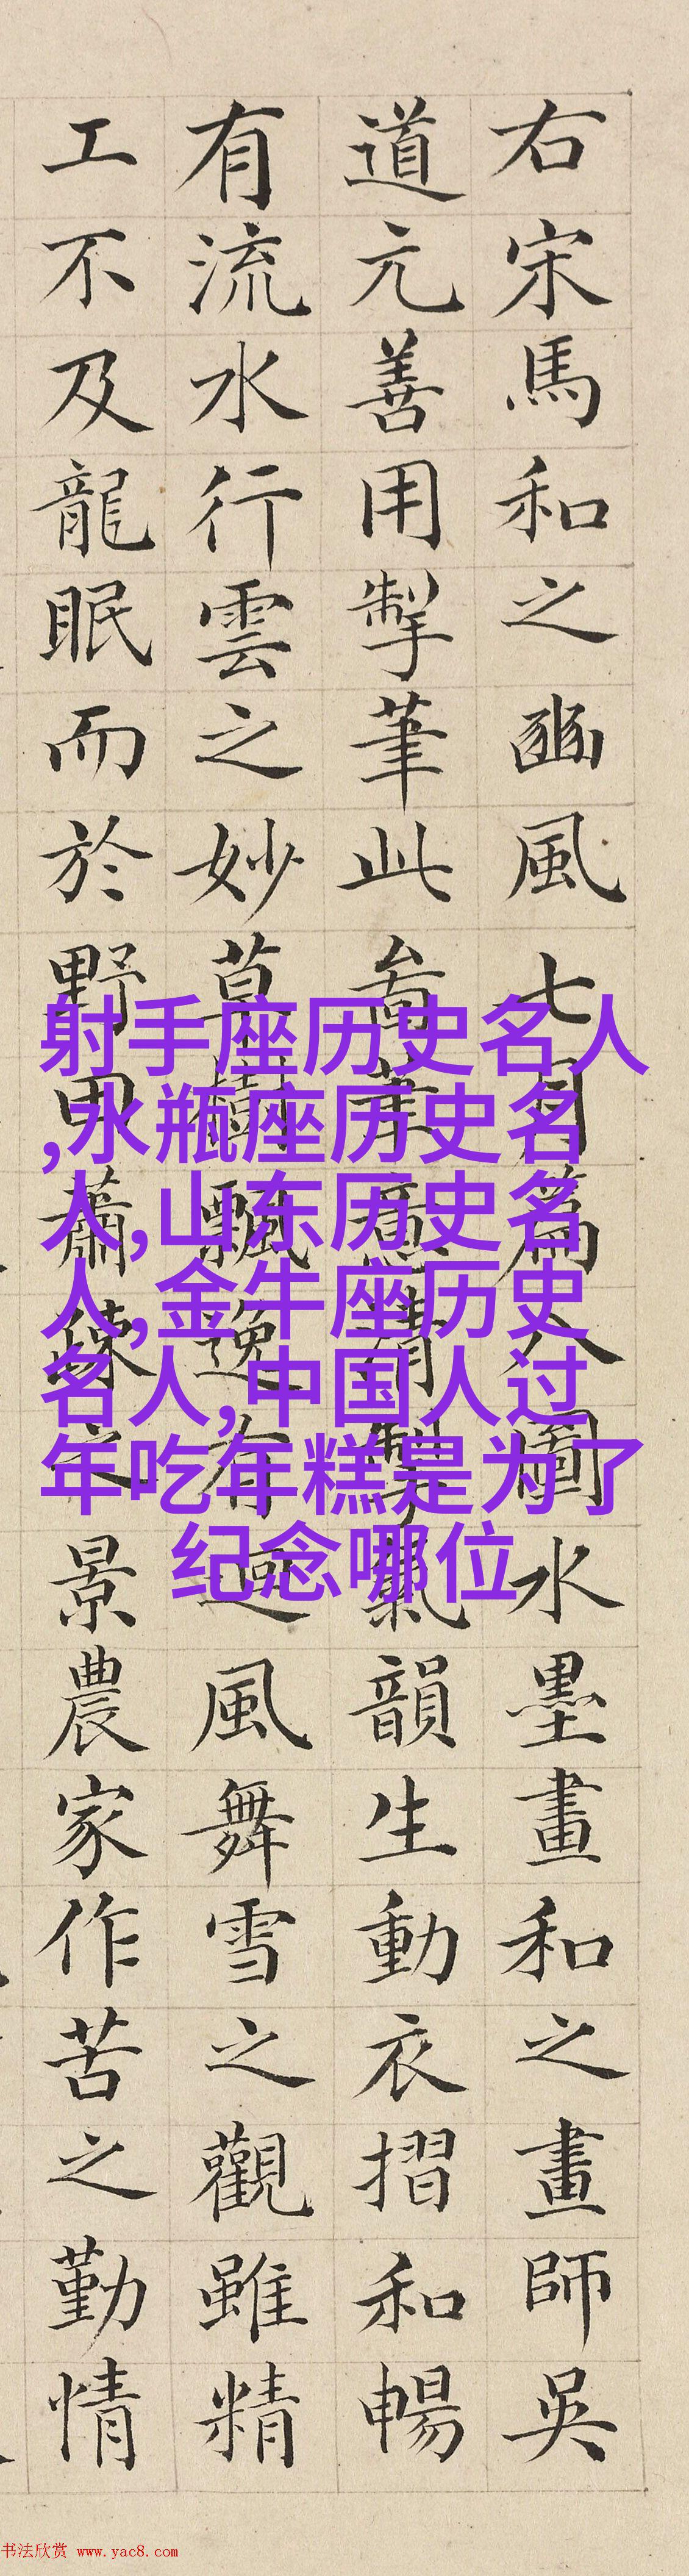 右宋馬和之豳風七月篇八圖水墨畫和之畫師吳
道元善用掣筆此啚筆意清掣氣韻生動衣摺和暢
有流水行雲之妙草樹飄逸有迴風舞雪之觀雖精
工不及龍眠而於野田蕭疎之景農家作苦之勤情
射手座历史名人
,水瓶座历史名
人,山东历史名
人,金牛座历史
名人,中国人过
年吃年糕是为了
纪念哪位
书法欣赏 www.yac8.com